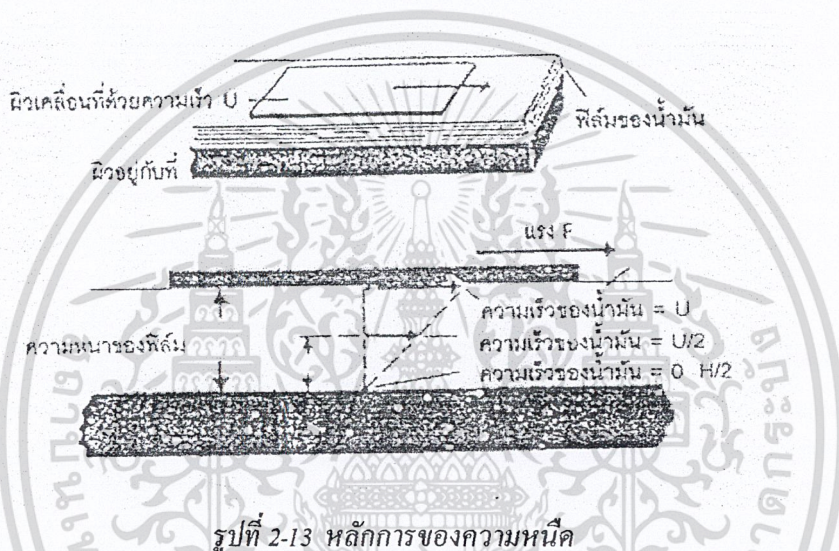 ผิวเคลื่อนที่ด้วยความเร็ว U
ฟิล์มของน้ำมัน
ผิวอยู่กับที่
แรง F
ความเร็วของน้ำมัน = U
ความหนาของฟิล์ม
ความเร็วของน้ำมัน = U/2
ความเร็วของน้ำมัน = 0 H/2
รูปที่ 2-13 หลักการของความหนืด